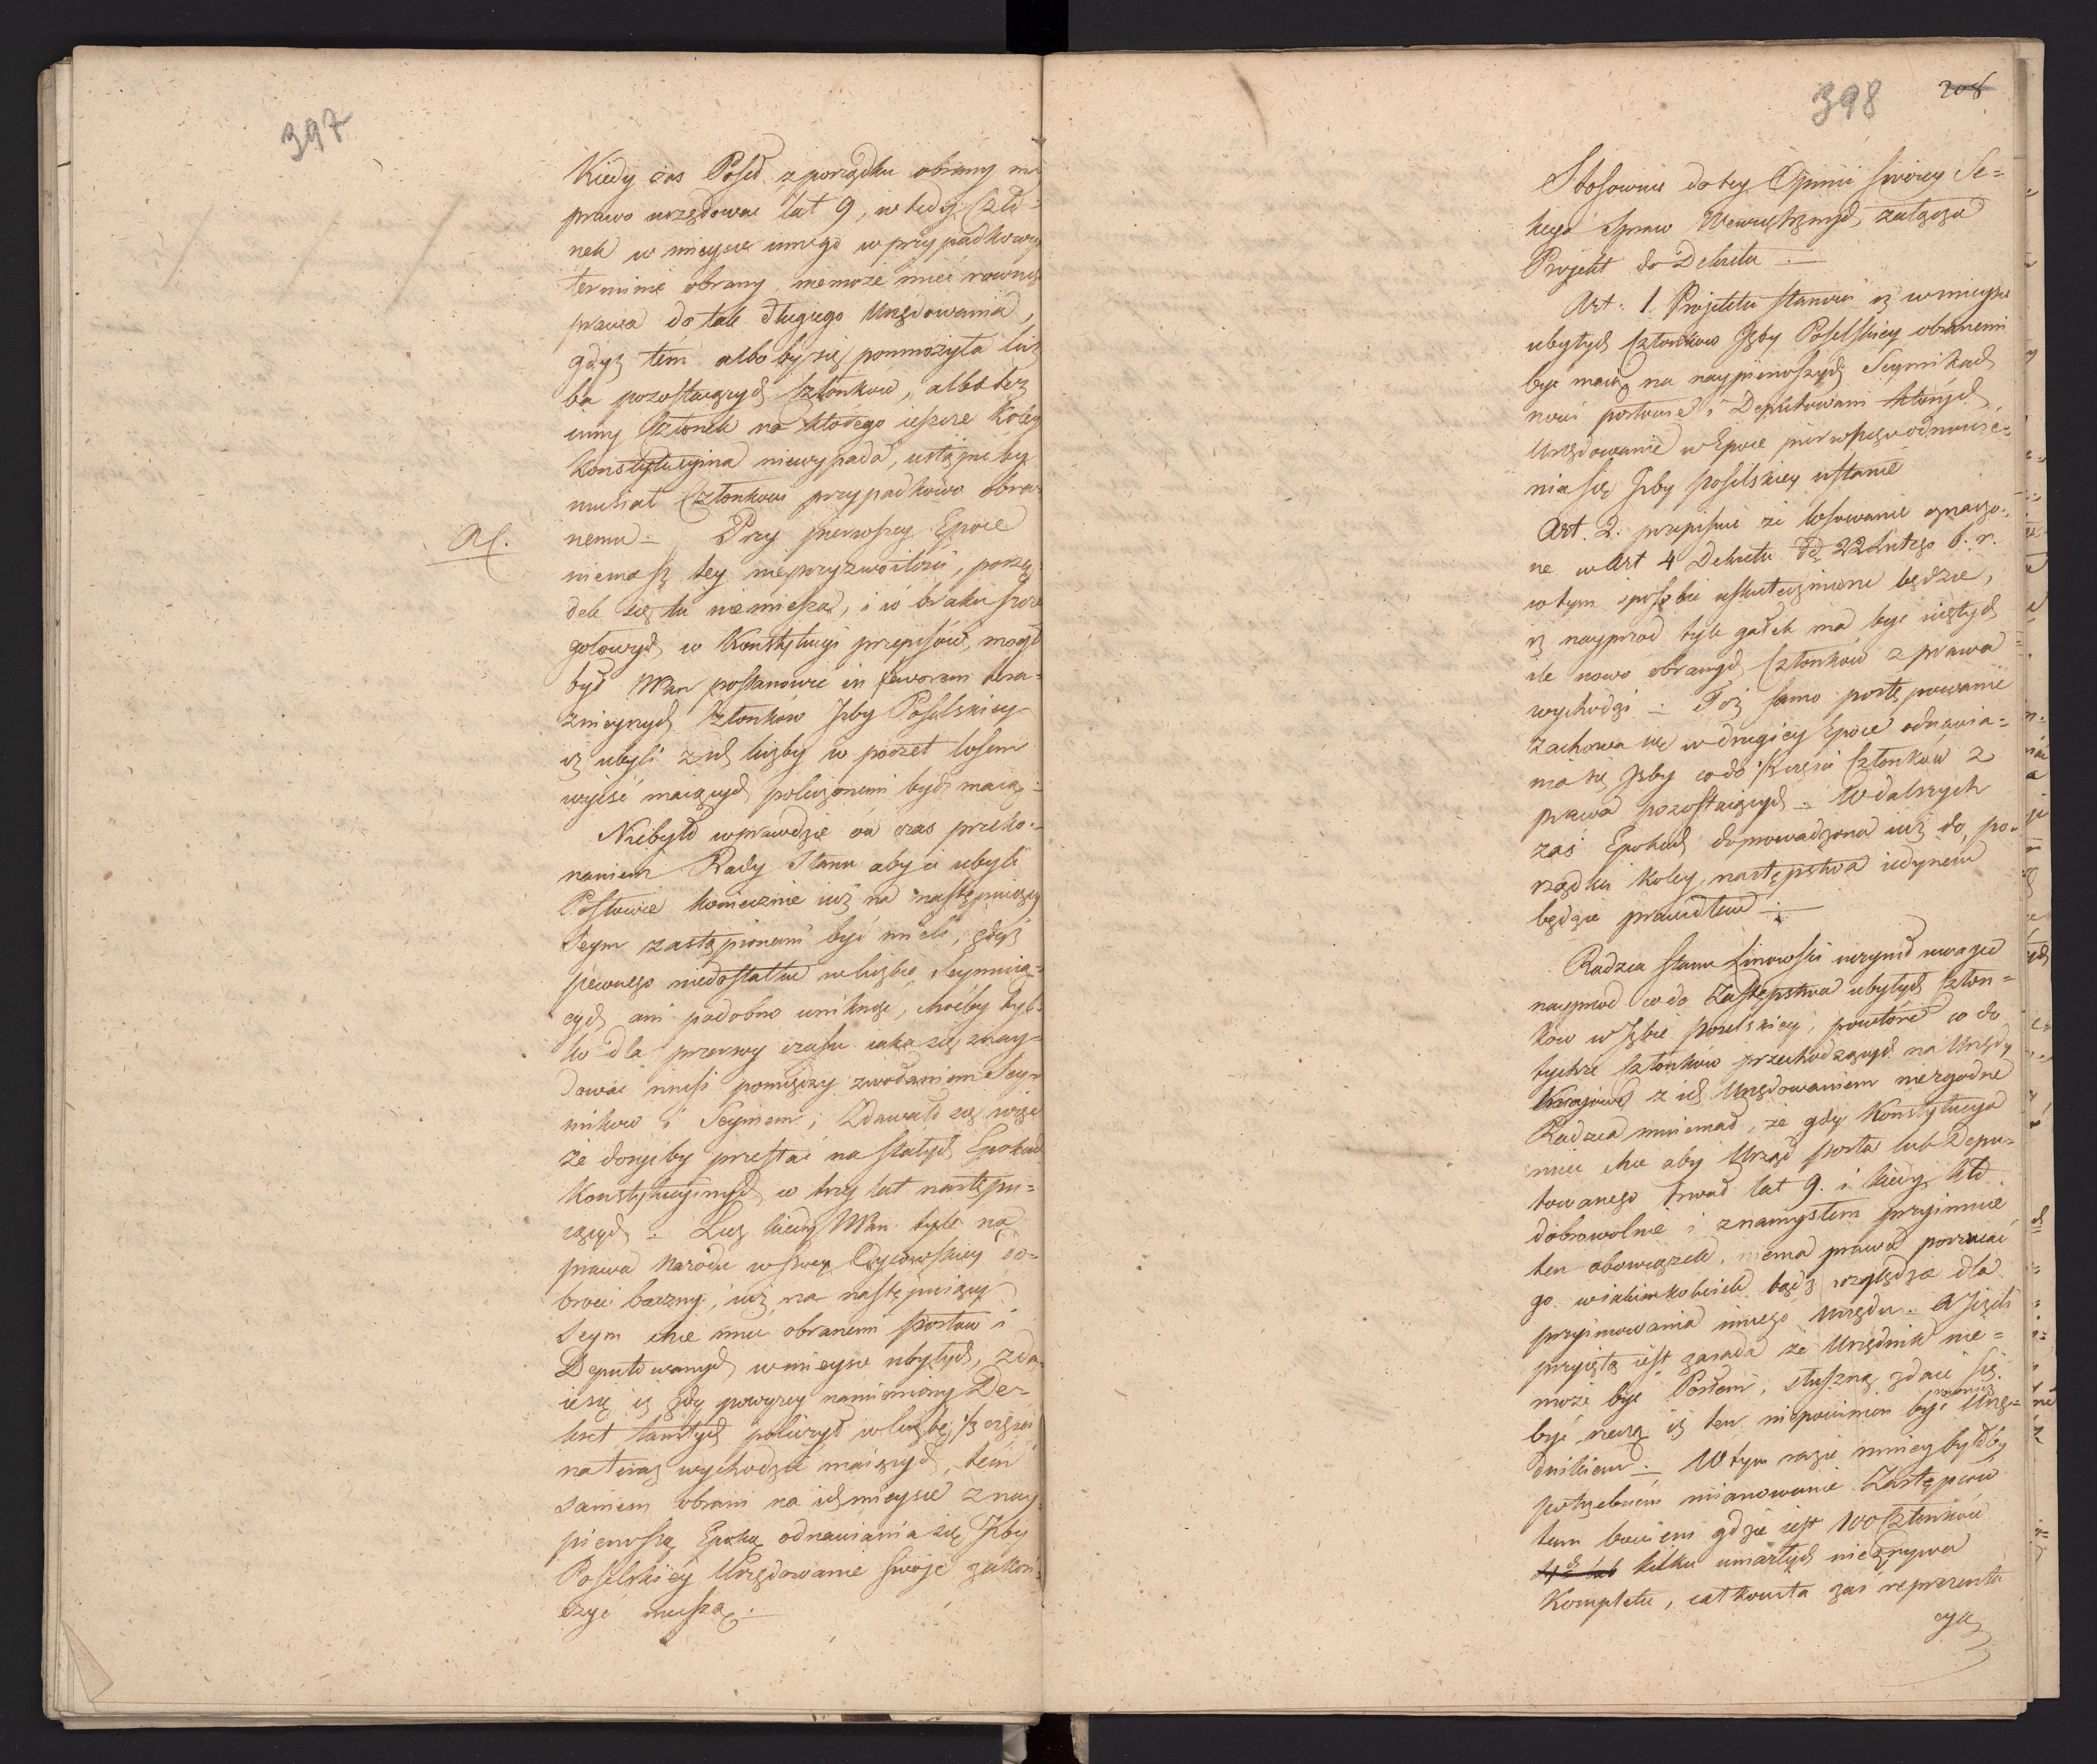 397
Kiedy zas Poseł z porządku obrany ma
prawo urzędować lat 9, wtedy Czło-
nek w mieysce innego w przypadkowym
terminie obrany, niemoże mieć rownego
prawa do tak długiego Urzędowania,
gdyż tém albo by się pomnożyła licz
ba pozostaiących Członkow, albo też
inny Członek na którego ieszcze koley
Konstytucyina niewypada, ustąpić by
musiał Członkowi przypadkowo obra-
nemu.– Przy pierwszey Epoce
niemasz tey nieprzyzwoitości, porzą-
dek się tu niemiesza, i w braku szcze
gołowych w Konstytucyi przepisów, mogł
był NPan postanowić in favorem tera-
znieyszych Członków Izby Poselskiey
iż ubyli z ich liczby w poczet losem
wyiść maiących policzonemi bydź maią.–
Niebyło wprawdzie na czas przeko-
naniem Rady Stanu aby ci ubyli
Posłowie koniecznie iuż na następuiący
Seym zastąpionemi być mieli, gdyż
pewnego niedostatku w liczbie Seymuią-
cych ani podobno uniknąć, choćby tyl-
ko dla przerwy czasu iaka się znay-
dować musi pomiędzy zwołaniem Sey-
mikow i Seymem; Zdawało się więc
że dosyć by przestać na stałych Epokach
Konstytucyinych w trzy lat następu-
iących.– Lecz kiedy NPan tyle na
prawa Narodu w swey Oycowskiey do-
broci baczny, iuż na następuiący
Seym chce mieć obranemi Posłow i
Deputowanych w mieysce ubyłych, zda-
ie się iż gdy powyżey namieniony De-
kret tamtych policzył w liczbę ⅓ części
na teraz wychodzić maiących, tém
samem obrani na ich mieysce z nay-
pierwszą Epoką odnawiania się Izby
Poselskiey Urzędowanie swoje zakoń-
czyć muszą.–
398 208
Stosownie do tey Opinii swoiey Se-
kcya Spraw Wewnętrznych, załącza
Projekt do Dekretu.–
Art: 1. Projektu stanowi iż w mieysce
ubyłych Członkow Izby Poselskiey obranemi
być maią na naypierwszych Seymikach
nowi posłowie i Deputowani których
Urzędowanie w Epoce pierwszego odnowie-
nia się Izby Poselskiey ustanie
Art. 2. przepisuie że losowanie oznaczo-
ne w Art 4 Dekretu dd 22 Lutego b. r.
w tym sposobie uskutecznione będzie,
iż nayprzod tyle gałek ma być ujętych
ile nowo obranych Członków z prawa
wychodzi.– Toż samo postępowanie
zachowa się w drugiey Epoce odnawia-
nia się Izby co do ⅓ części Członków z
prawa pozostaiących.– W dalszych
zaś Epokach doprowadzona iuż do po-
rządku koley następstwa iedynem
będzie prawidłem.–
Radca Stanu Linowski uczynił uwagę
nayprzod co do Zastępstwa ubyłych Człon-
ków w Izbie poselskiey, powtóre co do
tychże Członków przechodzących na Urzędy
Krajowe z ich Urzędowaniem niezgodne
Radca mniemał, że gdy Konstytucya
mieć chce aby Urząd Posła lub Depu-
towanego trwał lat 9. i kiedy kto
dobrowolnie i z namysłem przyimuie
ten obowiązek, niema prawa porzucać
go w iakimkolwiek bądź względzie dla
przyimowania innego Urzędu. A Jeżeli
przyięta iest zasada że Urzędnik nie-
może być Posłem, słuszną zdaie się
być rzeczą iż ten niepowinien być również Urzę-
dnikiem.– W tym razie mniey byłoby
potrzebném mianowanie Zastępców
tam bowiem gdzie iest 100 Członków
kilku umarłych niezrywa
Kompletu, całkowita zaś reprezenta
cya